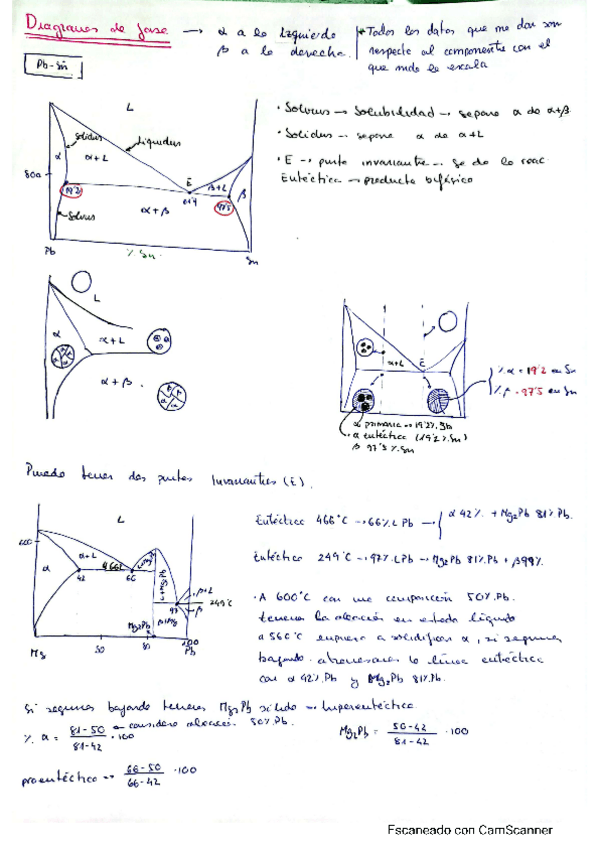 Diagramas de fase → α a la izquierda
β a la derecha.
* Todos los datos que me dan son
respecto al componente con el
que mido la escala
Pb-Sn
L
solidus
Liquidus
α
α+L
800
19'2
Ē
61'9
β+L
97'5
β
solvus
α+β
Pb
% Sn
Sn
· Solvus → Solubilidad → separa α de α+β
· Solidus → separa α de α+L
· E → punto invariante → se da la reac.
Eutéctica → producto bifásico
L
α
α+L
α+β
α+L
Ē
% α = 19'2 en Sn
% β = 97'5 en Sn
α primaria → 19'2% Sn
α eutéctica (19'2% Sn)
β 97'5% Sn
Puedo tener dos puntos invariantes (E).
L
600
α+L
α
42
466
66
L+Mg2Pb
β+L
249°C
97
β
Mg2Pb
Mg
50
80
100
Pb
Eutéctica 466°C → % 66 % Pb → α 42%. + Mg2Pb 81% Pb.
Eutéctica 249°C → 97% Pb → Mg2Pb 81% Pb + β 99%
· A 600°C con una composición 50% Pb.
tenemos la aleación en estado líquido
a 560°C empieza a solidificar α, si seguimos
bajando atravesamos la línea eutéctica
con α 42% Pb y Mg2Pb 81% Pb.
Si seguimos bajando tenemos Mg2Pb sólido →
% α = 81-50 / 81-42 · 100
considero aleación 50% Pb.
Mg2Pb = 50-42 / 81-42 · 100
proeutéctica → 66-50 / 66-42 · 100
Escaneado con CamScanner